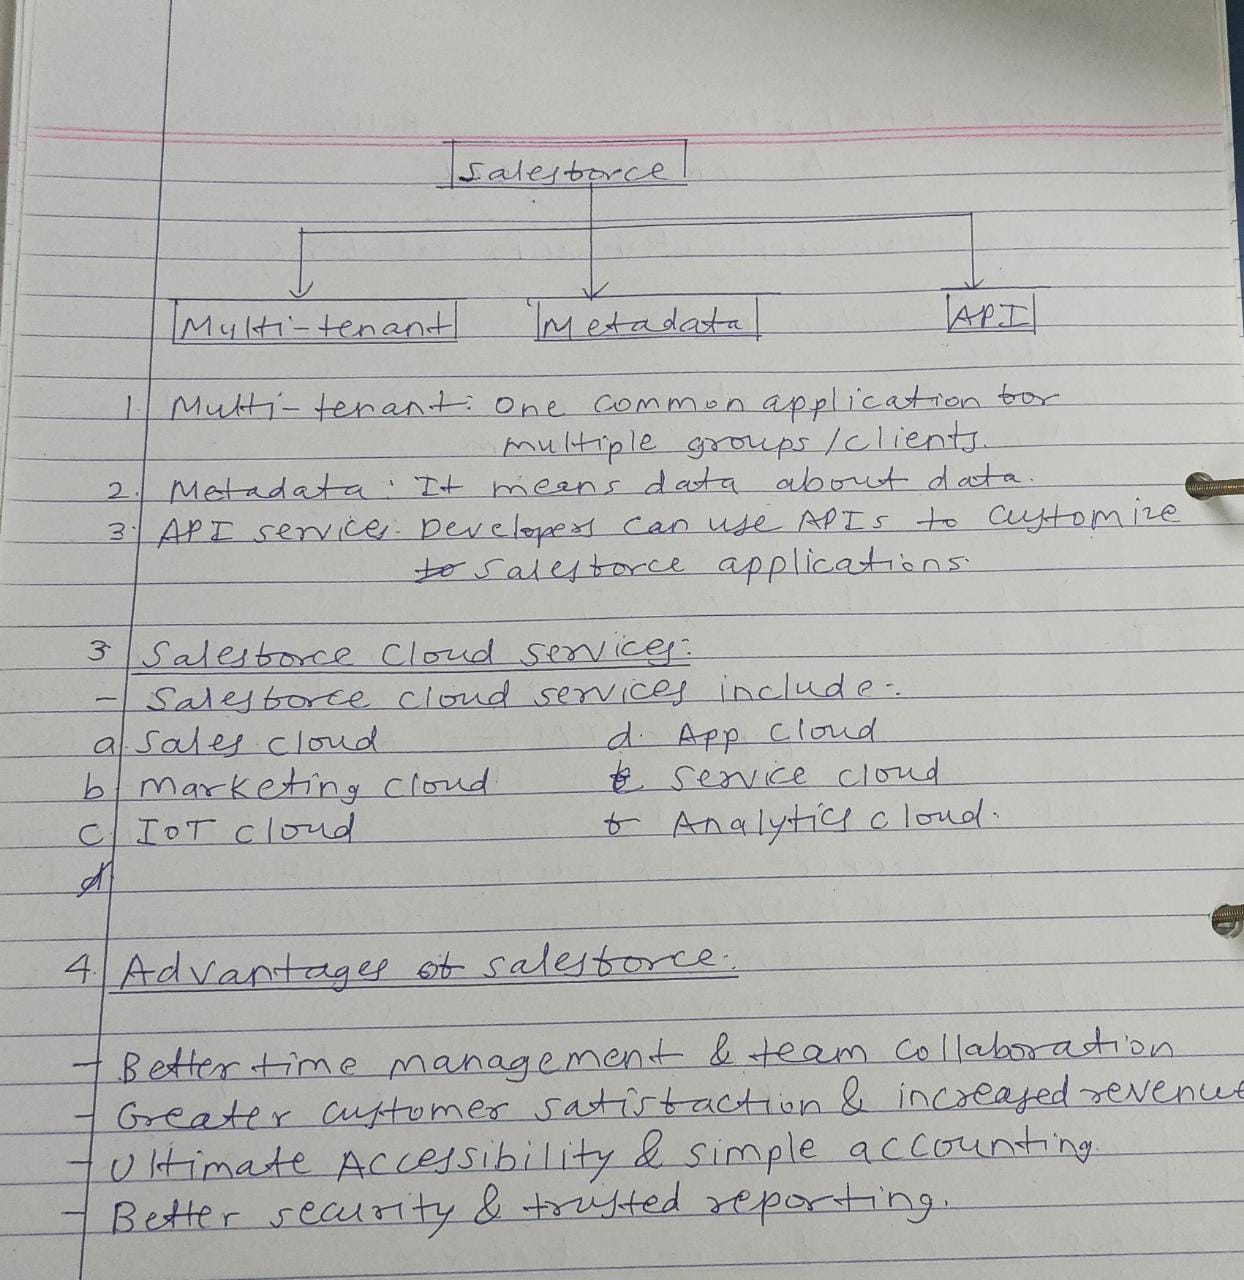 Salesforce
Multi-tenant Metadata API
1. Multi-tenant: One common application for
multiple groups/clients.
2. Metadata: It means data about data.
3. API services: Developers can use APIs to customize
to Salesforce applications.
3 Salesforce Cloud services:
- Salesforce cloud services include:
a. Sales cloud d. App Cloud
b Marketing cloud e Service cloud
c. IOT cloud f Analytics cloud.
d
4. Advantages of salesforce:
- Better time management & team collaboration
- Greater customer satisfaction & increased revenue
- Ultimate Accessibility & simple accounting.
- Better security & trusted reporting.